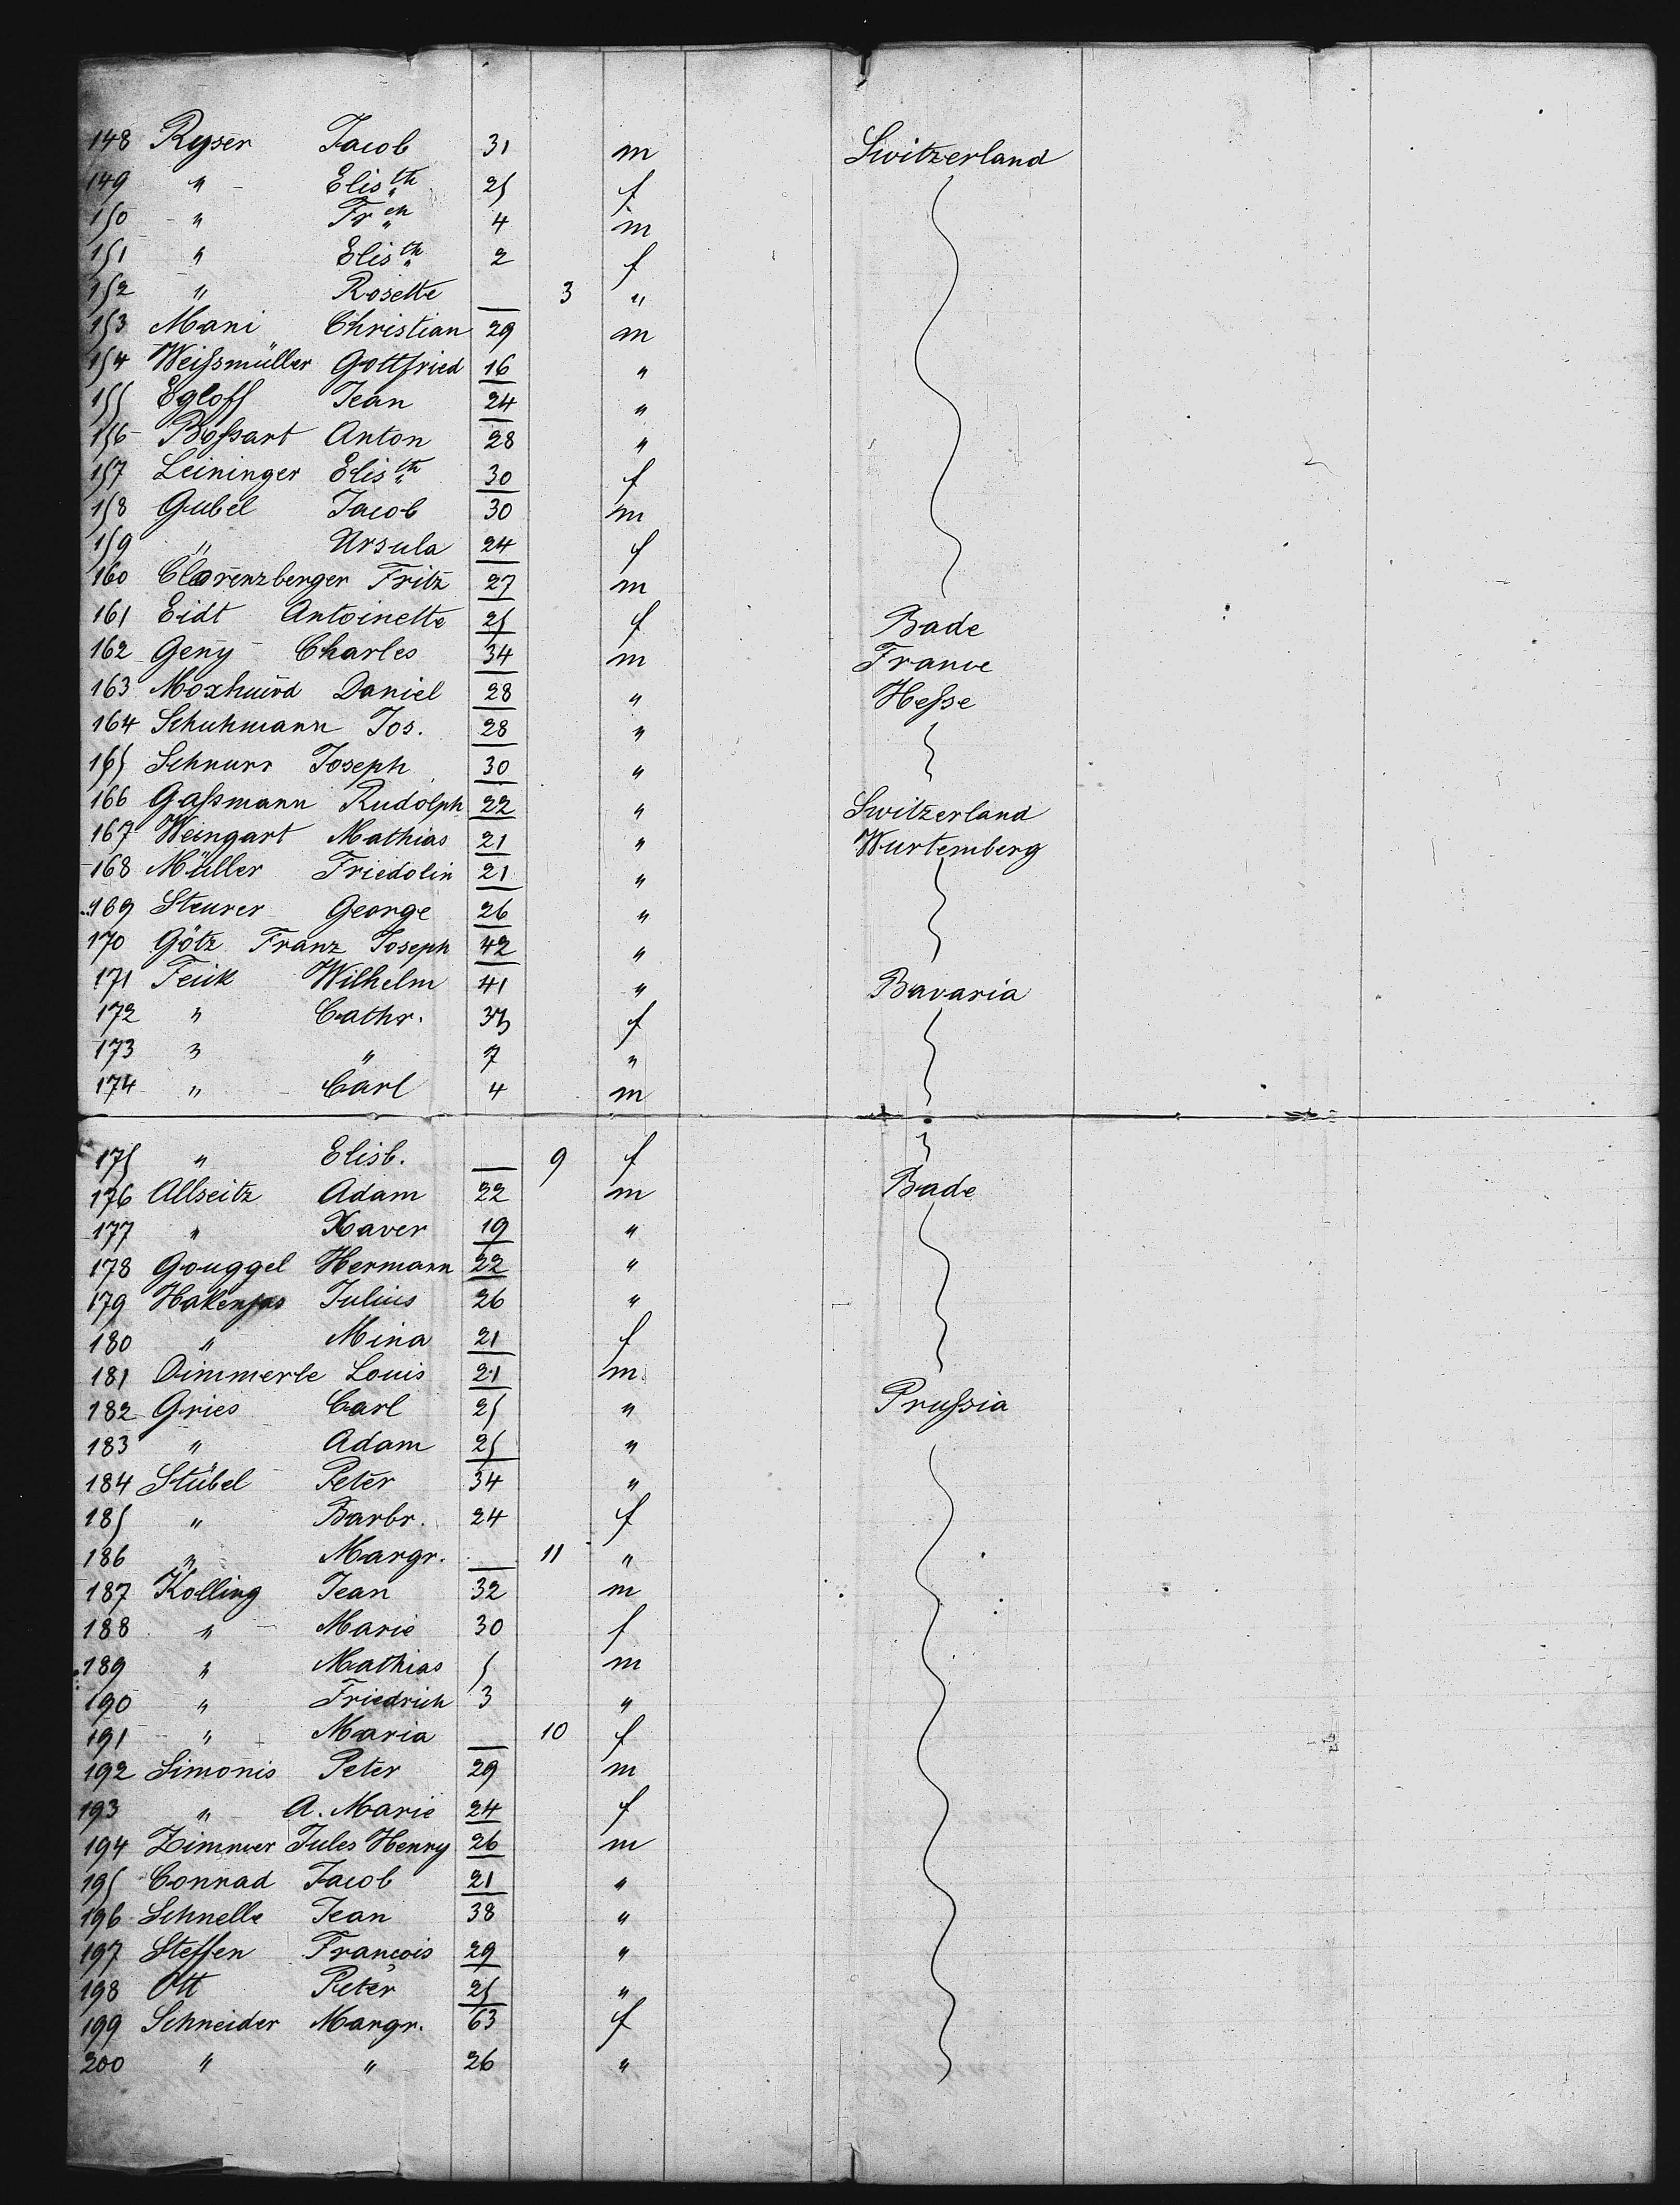 148 Ryser Jacob 31 m Switzerland
149 " Elisth 25 f
150 " Frch 4 m
151 " Elisth 2 f
152 " Rosette — 3 "
153 Mani Christian 29 m
154 Weissmüller Gottfried 16 "
155 Egloff Jean 24 "
156 Bossart Anton 28 "
157 Leininger Elisth 30 f
158 Gubel Jacob 30 m
159 " Ursula 24 f
160 Clarenzberger Fritz 27 m
161 Eidt Antoinette 25 f Bade
162 Geny Charles 34 m France
163 Daniel 28 " Hesse
164 Schuhmann Jos. 28 "
165 Schnurr Joseph 30 "
166 Gassmann Rudolph 22 " Switzerland
167 Weingart Mathias 21 " Wurtemberg
168 Müller Friedolin 21 "
169 Steurer George 26 "
170 Götz Franz Joseph 42 "
171 Feick Wilhelm 41 " Bavaria
172 " Cathr. f
173 " " 7 "
174 " Carl 4 m
175 " Elisb. — 9 f
176 Allseitz Adam 22 m Bade
177 " Xaver 19 "
178 Gouggel Hermann 22 "
179 Hakenjos Julius 26 "
180 " Mina 21 f
181 Dimmerle Louis 21 m
182 Gries Carl 25 " Prussia
183 " Adam 25 "
184 Stübel Peter 34 "
185 " Barbr. 24 f
186 " Margr. — 11 "
187 Kolling Jean 32 m
188 " Marie 30 f
189 " Mathias 5 m
190 " Friedrich 3 "
191 " Maria — 10 f
192 Simonis Peter 29 m
193 " A. Marie 24 f
194 Zimmer Jules Henry 26 m
195 Conrad Jacob 21 "
196 Schnelle Jean 38 "
197 Steffen François 29 "
198 Ott Peter 25 "
199 Schneider Margr. 63 f
200 " " 26 "